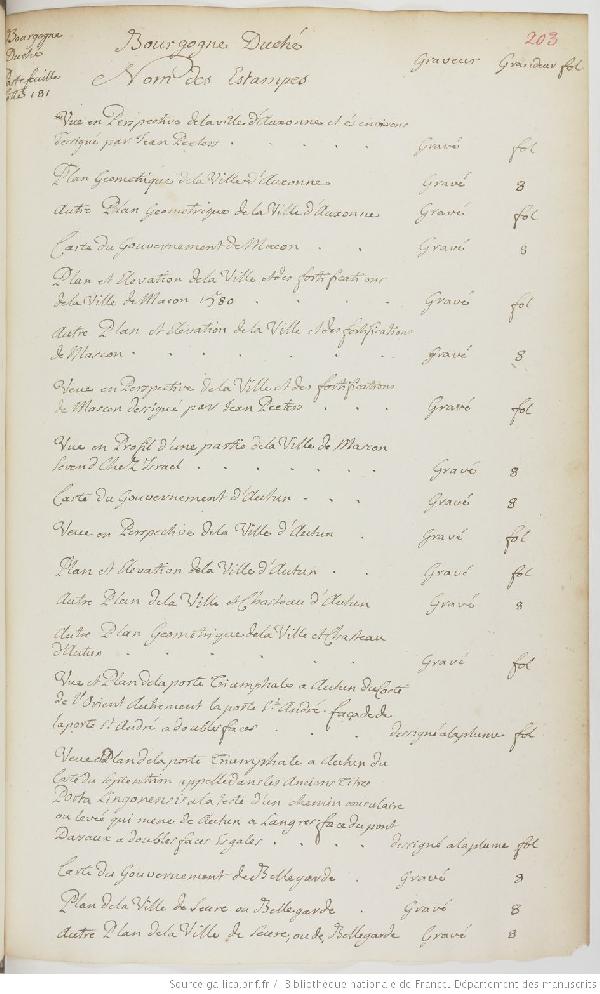 203
Bourgogne
Duché
Portefeuille
181
Bourgogne Duché
Nom des Estampes
Graveur Grandeur fol
Vüe en Perspective de la ville d'Auxonne et és environs
dessigné par Jean Peeters . . . . Gravé fol
Plan Geometrique de la Ville d'Auxonne Gravé 8
Autre Plan Geometrique de la Ville d'Auxonne Gravé fol
Carte du Gouvernement de Macon . . Gravé 8
Plan et Elevation de la Ville et des fortifications
de la Ville de Macon 1580 . . . . Gravé fol
Autre Plan et Elevation de la Ville et des fortifications
de Mascon . . . . . . . Gravé 8
Veue en Perspective de la Ville et des fortifications
de Mascon dessigné par Jean Peeters . . Gravé fol
Vüe en Profil d'une partie de la Ville de Mascon
se vend Chez Israel . . . . . . Gravé 8
Carte du Gouvernement d'Autun . . . Gravé 8
Veue en Perspective de la Ville d'Autun . Gravé fol
Plan et Elevation de la Ville d'Autun . . Gravé fol
Autre Plan de la Ville et Chasteau d'Autun Gravé 8
Autre Plan Geometrique de la Ville et Chasteau
d'Autun . . . . . Gravé fol
Vüe et Plan de la porte Triomphale a Autun du Costé
de l'Orient Autrement la porte St. André. façade de
la porte St André a doubles faces . . . . dessigné a la plume fol
Veue et Plan de la porte Triumphale a Authun du
Costé du septentrion appellé dans les Anciens Titres
Porta Lingonensis a la teste d'un chemin
ou levée qui mene de Autun a Langres: face du pont
Davaux a doubles faces Egales . . . . dessigné a la plume fol
Carte du Gouvernement de Bellegarde . Gravé 8
Plan de la Ville de Seure ou Bellegarde . Gravé 8
Autre Plan de la Ville de Seure, ou de Bellegarde Gravé 8
Source gallica.bnf.fr / Bibliothèque nationale de France. Département des manuscrits